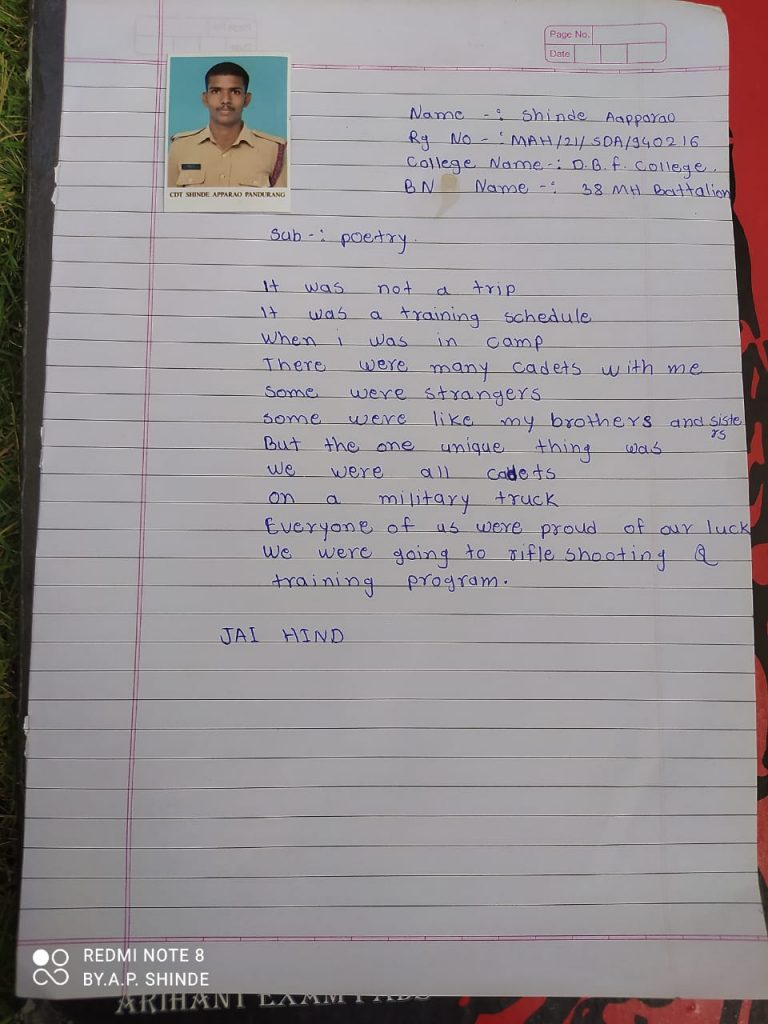 Page No.
Date
Name -: Shinde Aapparao
Rg No -: MAH/21/SDA/940216
College Name-: D.B.f. College.
BN Name -: 38 MH Battalion
CDT SHINDE APPARAO PANDURANG
Sub -: poetry.
It was not a trip
It was a training schedule
When i was in camp
There were many cadets with me
Some were strangers
some were like my brothers and sisters
But the one unique thing was
We were all cadets
on a military truck
Everyone of us were proud of our luck
We were going to rifle shooting &
training program.
JAI HIND
REDMI NOTE 8
BY.A.P. SHINDE
ARIHANT EXAM PADS